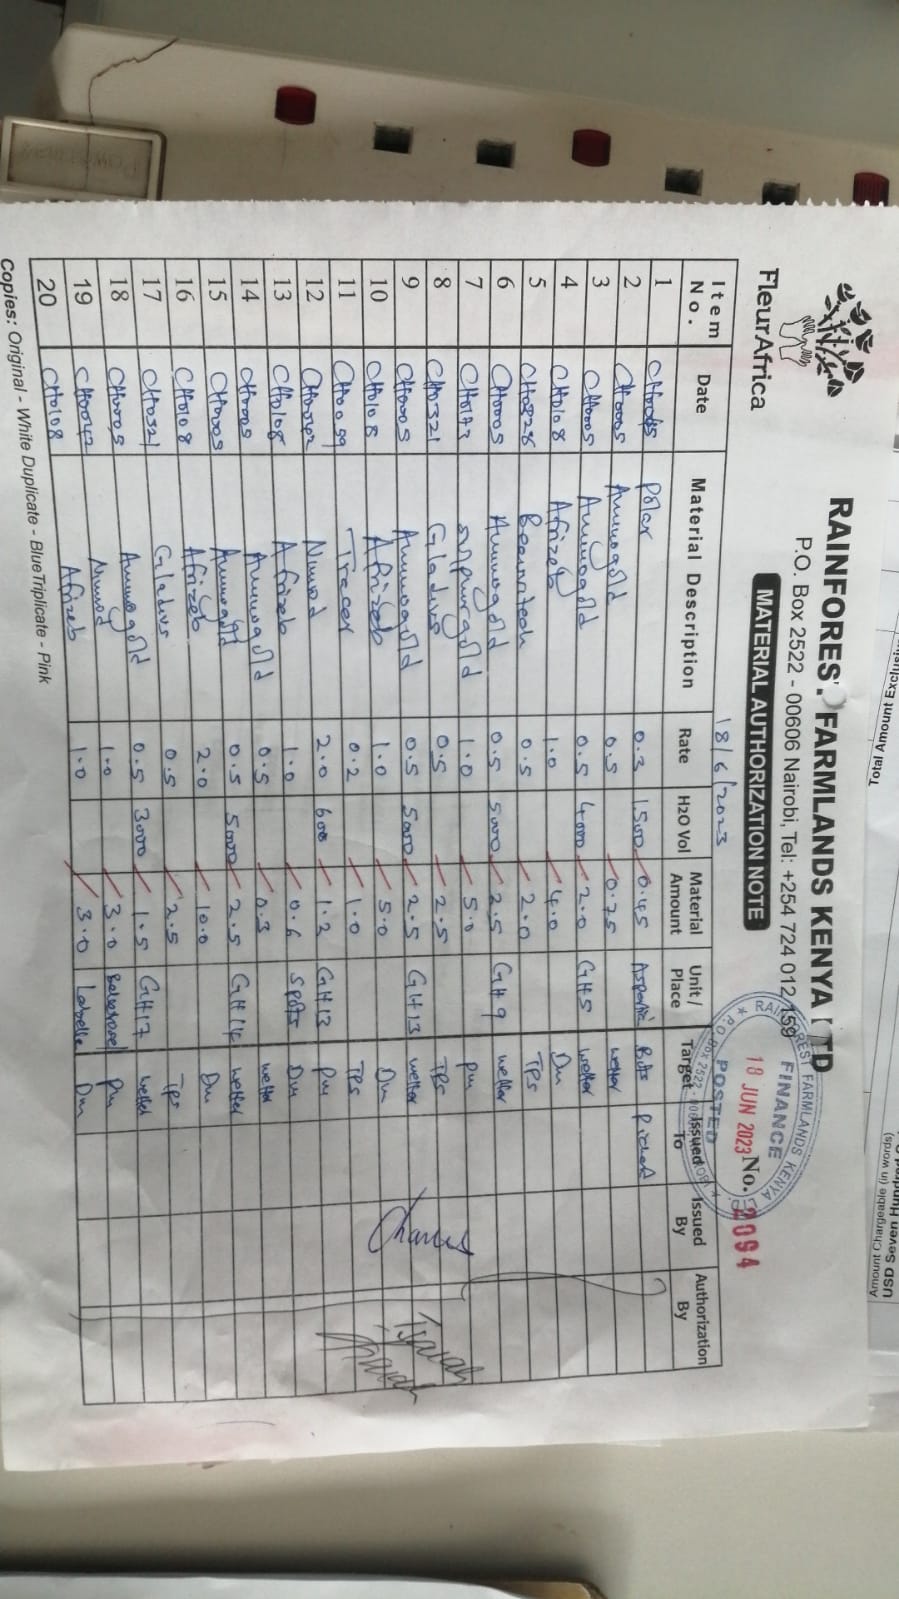 Total Amount Exclusiv
Amount Chargeable (in words)
USD Seven Hundred
FleurAfrica
RAINFOREST FARMLANDS KENYA LTD
P.O. Box 2522 - 00606 Nairobi, Tel: +254 724 012 159
MATERIAL AUTHORIZATION NOTE
RAINFOREST FARMLANDS KENYA LTD.
FINANCE
18 JUN 2023
POSTED
P.O. Box 2522 - 00606, NAIROBI
No. 2094
18/6/2023
Item No. Date Material Description Rate H2O Vol Material Amount Unit / Place Target Issued To Issued By Authorization By
1 Polar 0.3 1500 0.45 Bots
2 CH0005 Aminogold 0.5 0.75 wetter
3 CH0005 Aminogold 0.5 4000 2.0 GH5 wetter
4 CH0108 Afrizeb 1.0 4.0 Dm
5 0.5 2.0 TPs
6 CH0005 Aminogold 0.5 5000 2.5 GH9 wetter
7 CH0173 sulphurgold 1.0 5.0 pm
8 CH0321 Gladius 0.5 2.5 TPs
9 CH0005 Aminogold 0.5 5000 2.5 GH13 wetter
10 CH0108 Afrizeb 1.0 5.0 Dm
11 CH0059 Tracer 0.2 1.0 TPs
12 CH0042 Nimrod 2.0 600 1.2 GH13 pm
13 CH0108 Afrizeb 1.0 0.6 Spots Dm
14 CH0005 Aminogold 0.5 0.3 wetter
15 CH0005 Aminogold 0.5 5000 2.5 GH14 wetter
16 CH0108 Afrizeb 2.0 10.0 Dm
17 CH0321 Gladius 0.5 2.5 TPs
18 CH0005 Aminogold 0.5 3000 1.5 GH17 wetter
19 CH0042 Nimrod 1.0 3.0 pm
20 CH0108 Afrizeb 1.0 3.0 Labelle Dm
Isaiah
Copies: Original - White Duplicate - Blue Triplicate - Pink